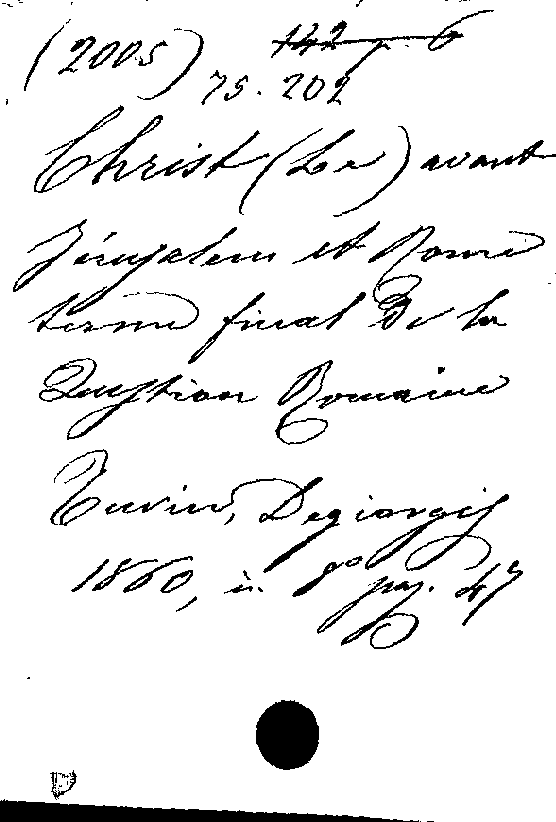 (2005) 142 p. 6
75. 202
Christ (Le) avant
Jérusalem et Rome
terme final de la
Question Romaine
Turin, Degiorgis
1860, in 8° pag. 47
D